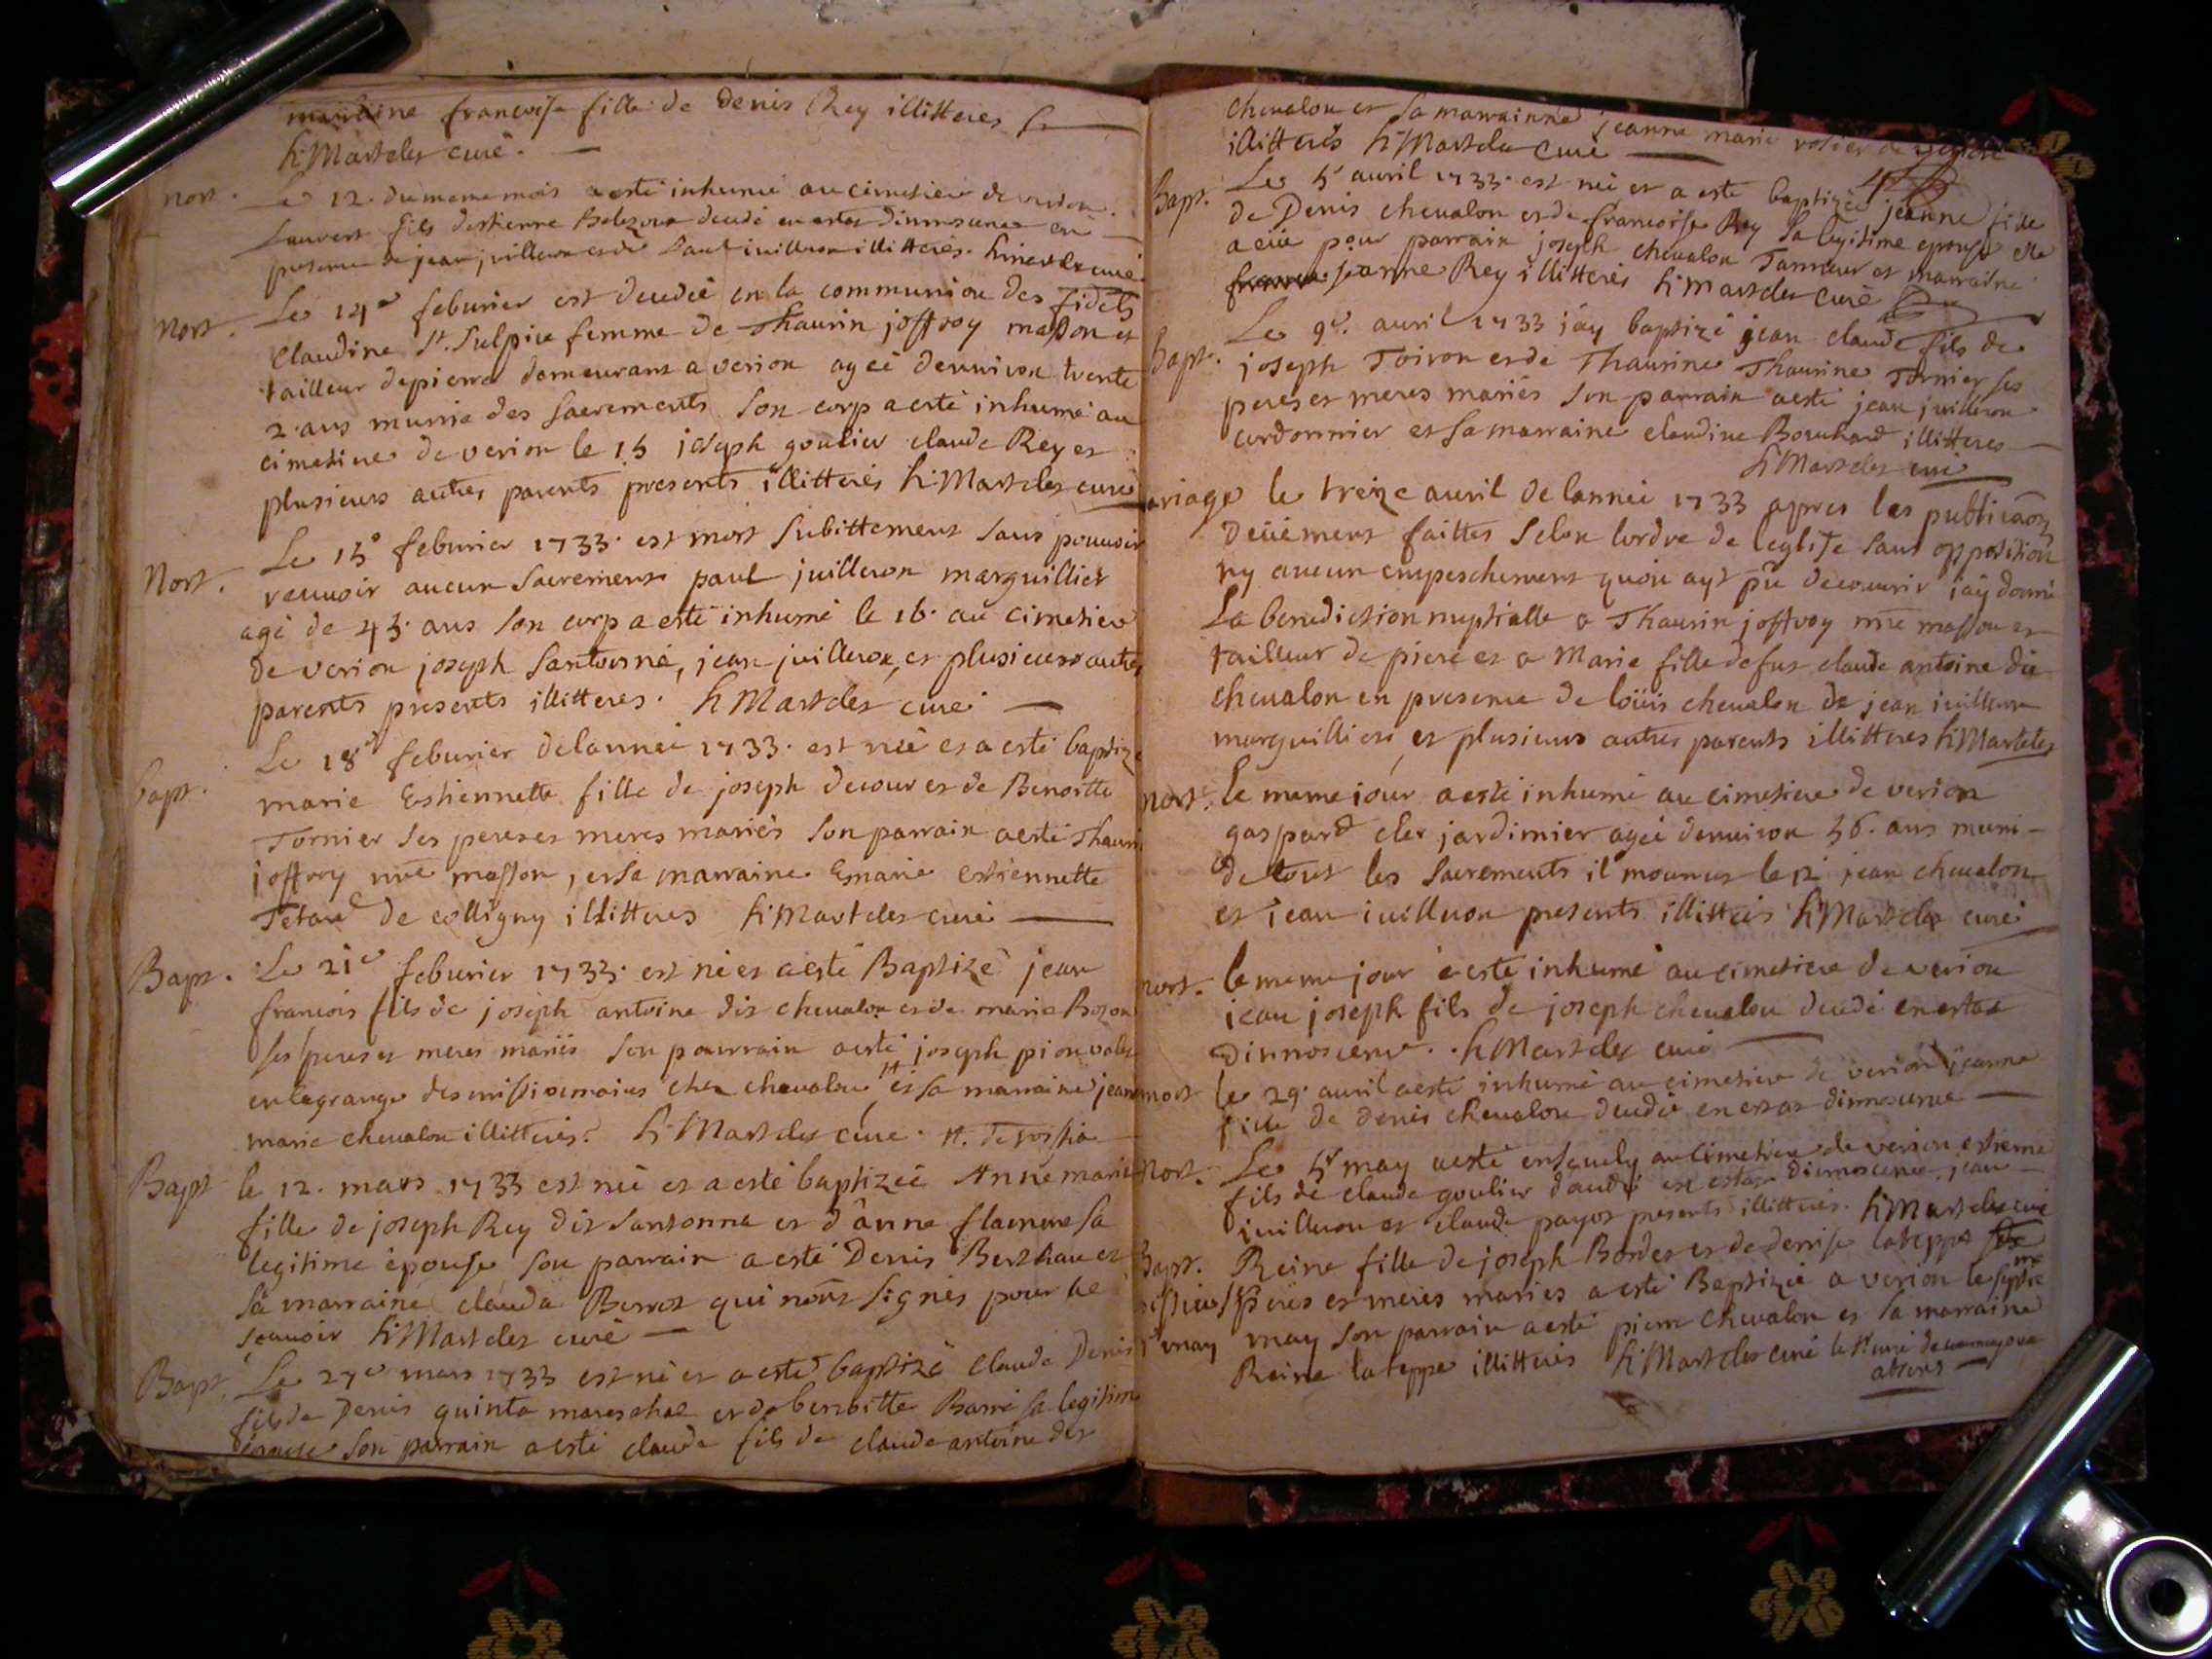 marraine francoise fille de Denis Rey illitteres
h Martelet curé.
mort. Le 12. du meme mois a esté inhumé au cimetiere de verion
Laurent fils d'estienne decedé en estat d'innoscence en
presence de jean juilleron et de Paul juilleron illitteres. curé
Mort. Le 14e feburier est decedeé en la communion des fidels
Claudine St. Sulpice femme de Thaurin joffroy masson et
tailleur de pierre demeurant a verion ageé denuiron trente
2. ans munie des sacrements son corp a esté inhumé au
cimetiere de verion le 15 joseph goulier claude Rey et
plusieurs autres parents presents illitterés h. Martelet curé
Mort. Le 15e feburier 1733. est mort subittement sans pouuoir
receuoir aucun sacrement paul juilleron marguillier
agé de 45. ans son corp a esté inhumé le 16. au cimetiere
de verion joseph Santonné, jean juilleron, et plusieurs autres
parents presents illitteres. h Martelet curé
bapt. Le 18e feburier de lanneé 1733. est neé et a esté baptizé
marie Estiennette fille de joseph decour et de Benoitte
Tornier ses peres et meres mariés son parrain a esté Thaurin
joffroy mre masson, et sa marraine marie estiennette
de colligny illitteres h. Martelet curé
Bapt. Le 21e feburier 1733. est né et a esté Baptizé jean
francois fils de joseph antoine dit cheualon et de marie Bozon
ses peres et meres mariés son parrain a esté joseph pion valet
en la grange des missionnaires chez cheualon et sa marraine jeanne
marie cheualon illitterés. h. Martelet curé.
Bapt le 12. mars 1733 est neé et a esté baptizeé Anne marie
fille de joseph Rey dit santonna et d'anne sa
legitime épouse son parrain a esté Denis et
sa marraine clauda qui n'ont signés pour ne
scauoir h. Martelet curé
Bapt. Le 27e mars 1733 est né et a esté baptizé Claude Denis
fils de Denis quinta mareschal et de benoitte Barré sa legitime
épouse son parrain a esté claude fils de claude antoine dit
cheualon et sa marrainne jeanne marie
illitterés h Martelet curé
Bapt. Le 5e auril 1733. est neé et a esté baptizeé jeanne fille
de Denis cheualon et de francoise Rey sa legitime epouse elle
a eüe pour parrain joseph cheualon Tanneur et marraine
jeanne Rey illitterés h Martelet curé
Bapt. Le 9e. auril 1733 j'ay baptizé jean claude fils de
joseph Toiron et de Thaurine Thaurine Tornier ses
peres et meres mariés son parrain a esté jean juilleron
cordonnier et sa marraine claudine Bouchard illitteres
h Martelet curé
ariage le treize auril de lanneé 1733 apres les publicaōns
deüement faittes selon lordre de leglise sans opposition
ny aucun empeschement quoi ayt pû decouurir jay donné
La benediction nuptialle a Thaurin joffroy mre masson et
tailleur de piere et a Marie fille de fut claude antoine dit
cheualon en presence de loüis cheualon de jean iuilleron
marguilliers, et plusieurs autres parents illitteres h Martelet
mort. le meme iour a esté inhumé au cimetiere de verion
gaspard clet jardinier ageé denuiron 56. ans muni
de tout les sacrements il mourut le 12 jean cheualon
et iean iuilleron presents illitterés h Martelet curé
mort. le meme jour a esté inhumé au cimetiere de verion
jean joseph fils de joseph cheualon decedé en estat
dinnoscence. h Martelet curé
mort le 29. auril a esté inhumé au cimetiere de verion jeanne
fille de Denis cheualon decedeé en estat dinnoscence
Mort. Le 5e may a esté enseuely au cimetiere de verion estienne
fils de claude goulier decedé en estat dinnoscence, jean
iuilleron et claude payot presents illitterés. h Martelet curé
Bapt. Reine fille de joseph Bordet et de denise lateppe
peres et meres mariés a esté Baptizeé a verion le septie me
may may son parrain a esté pierre cheualon et la marraine
Reine lateppe illitterés h Martelet curé le Sr curé de
absent